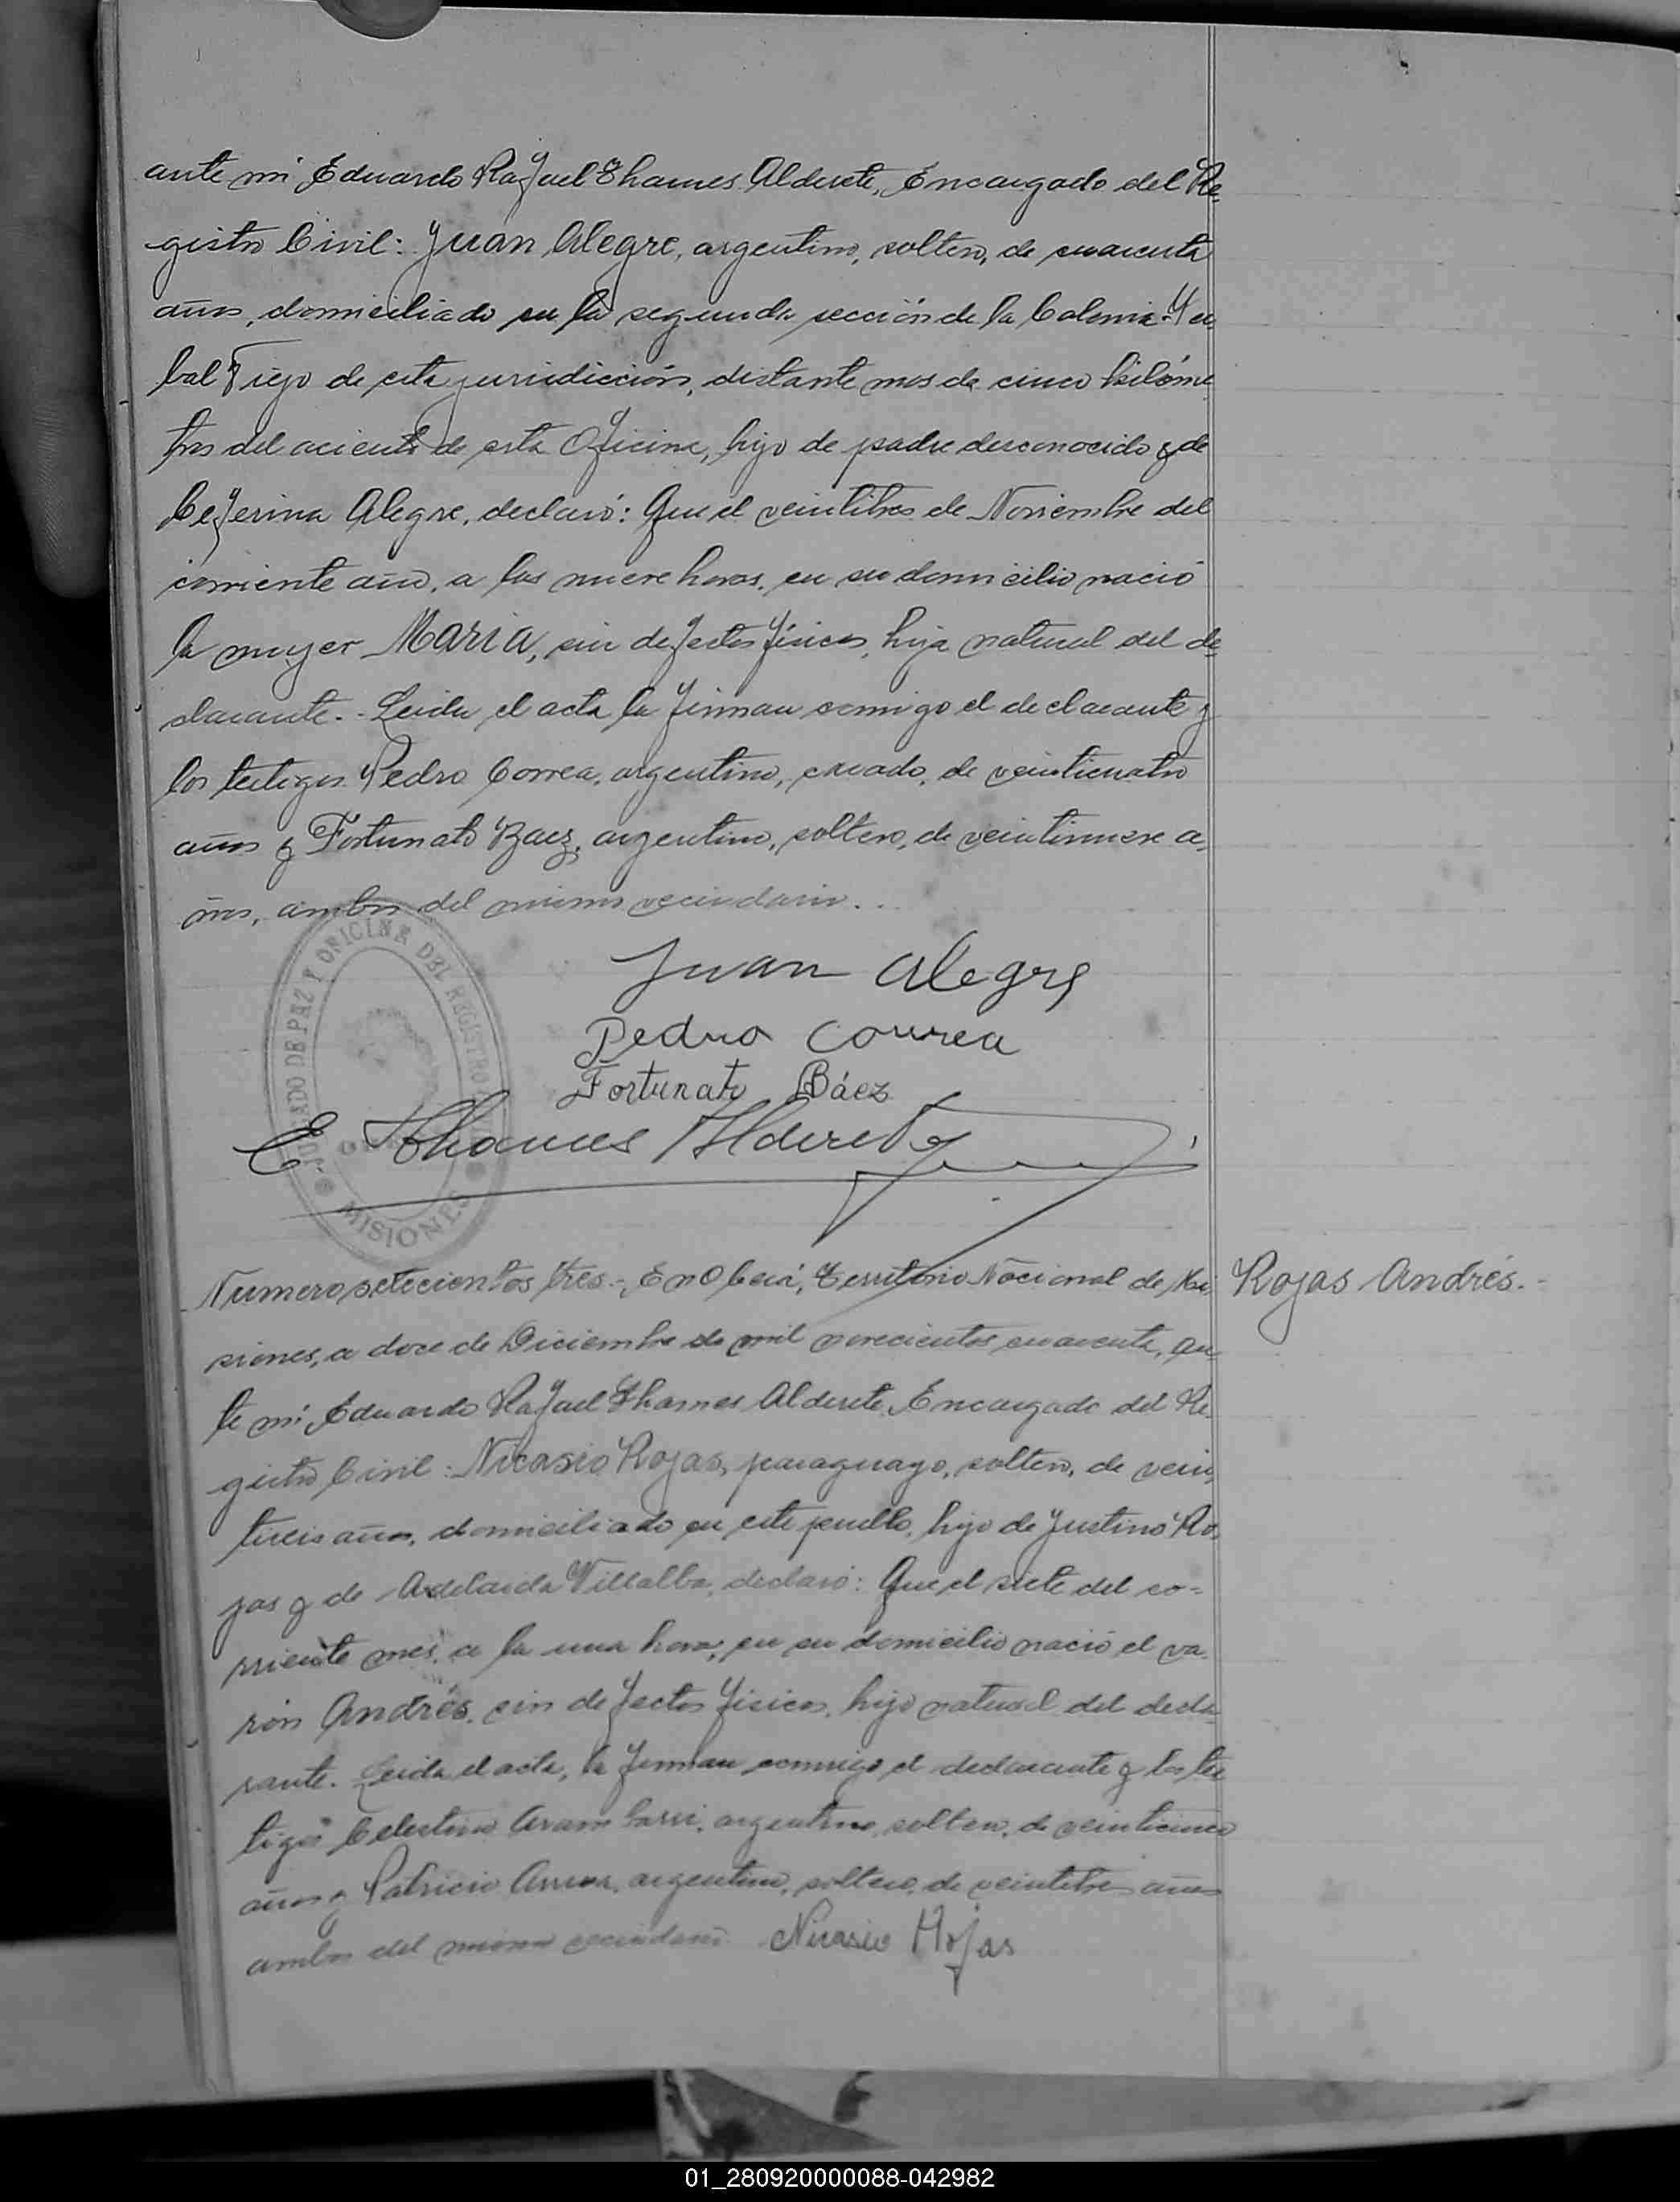 ante mi Eduardo Rafael Thames Alderete, Encargado del Re-
gistro Civil: Juan Alegre, argentino, soltero, de cuarenta
años, domiciliado en la segunda sección de la Colonia Yer
bal Viejo de esta jurisdicción, distante mas de cinco kilóme
tros del aciento de esta Oficina, hijo de padre desconocido y de
Ceferina Alegre, declaró: Que el veintitres de Noviembre del
corriente año, a las nueve horas, en su domicilio nació
la mujer Maria, sin defectos físicos, hija natural del de-
clarante.- Leida el acta la firman conmigo el declarante y
los testigos Pedro Correa, argentino, casado, de veinticuatro
años y Fortunato Baez, argentino, soltero, de veintinueve a-
ños, ambos del mismo vecindario..
JUZGADO DE PAZ Y OFICINA DEL REGISTRO
MISIONES
Juan Alegre
Pedro Correa
Fortunato Báez
E Thames Alderete
Numero setecientos tres.- En Oberá, Territorio Nacional de Mi-
Rojas Andrés.-
siones, a doce de Diciembre de mil novecientos cuarenta, an-
te mi Eduardo Rafael Thames Alderete, Encargado del Re-
gistro Civil: Nicasio Rojas, paraguayo, soltero, de vein-
tiseis años, domiciliado en este pueblo, hijo de Justino Ro-
jas y de Adelaida Villalba, declaró: Que el siete del co-
rriente mes, a la una hora, en su domicilio nació el va-
rón Andrés, sin defectos físicos, hijo natural del decla-
rante. Leida el acta, la firman conmigo el declarante y los tes
tigos Celestino Aramburu, argentino, soltero, de veinticinco
años y Patricio, argentino, soltero, de veintitres años
ambos del mismo vecindario. Nicasio Rojas
01_280920000088-042982